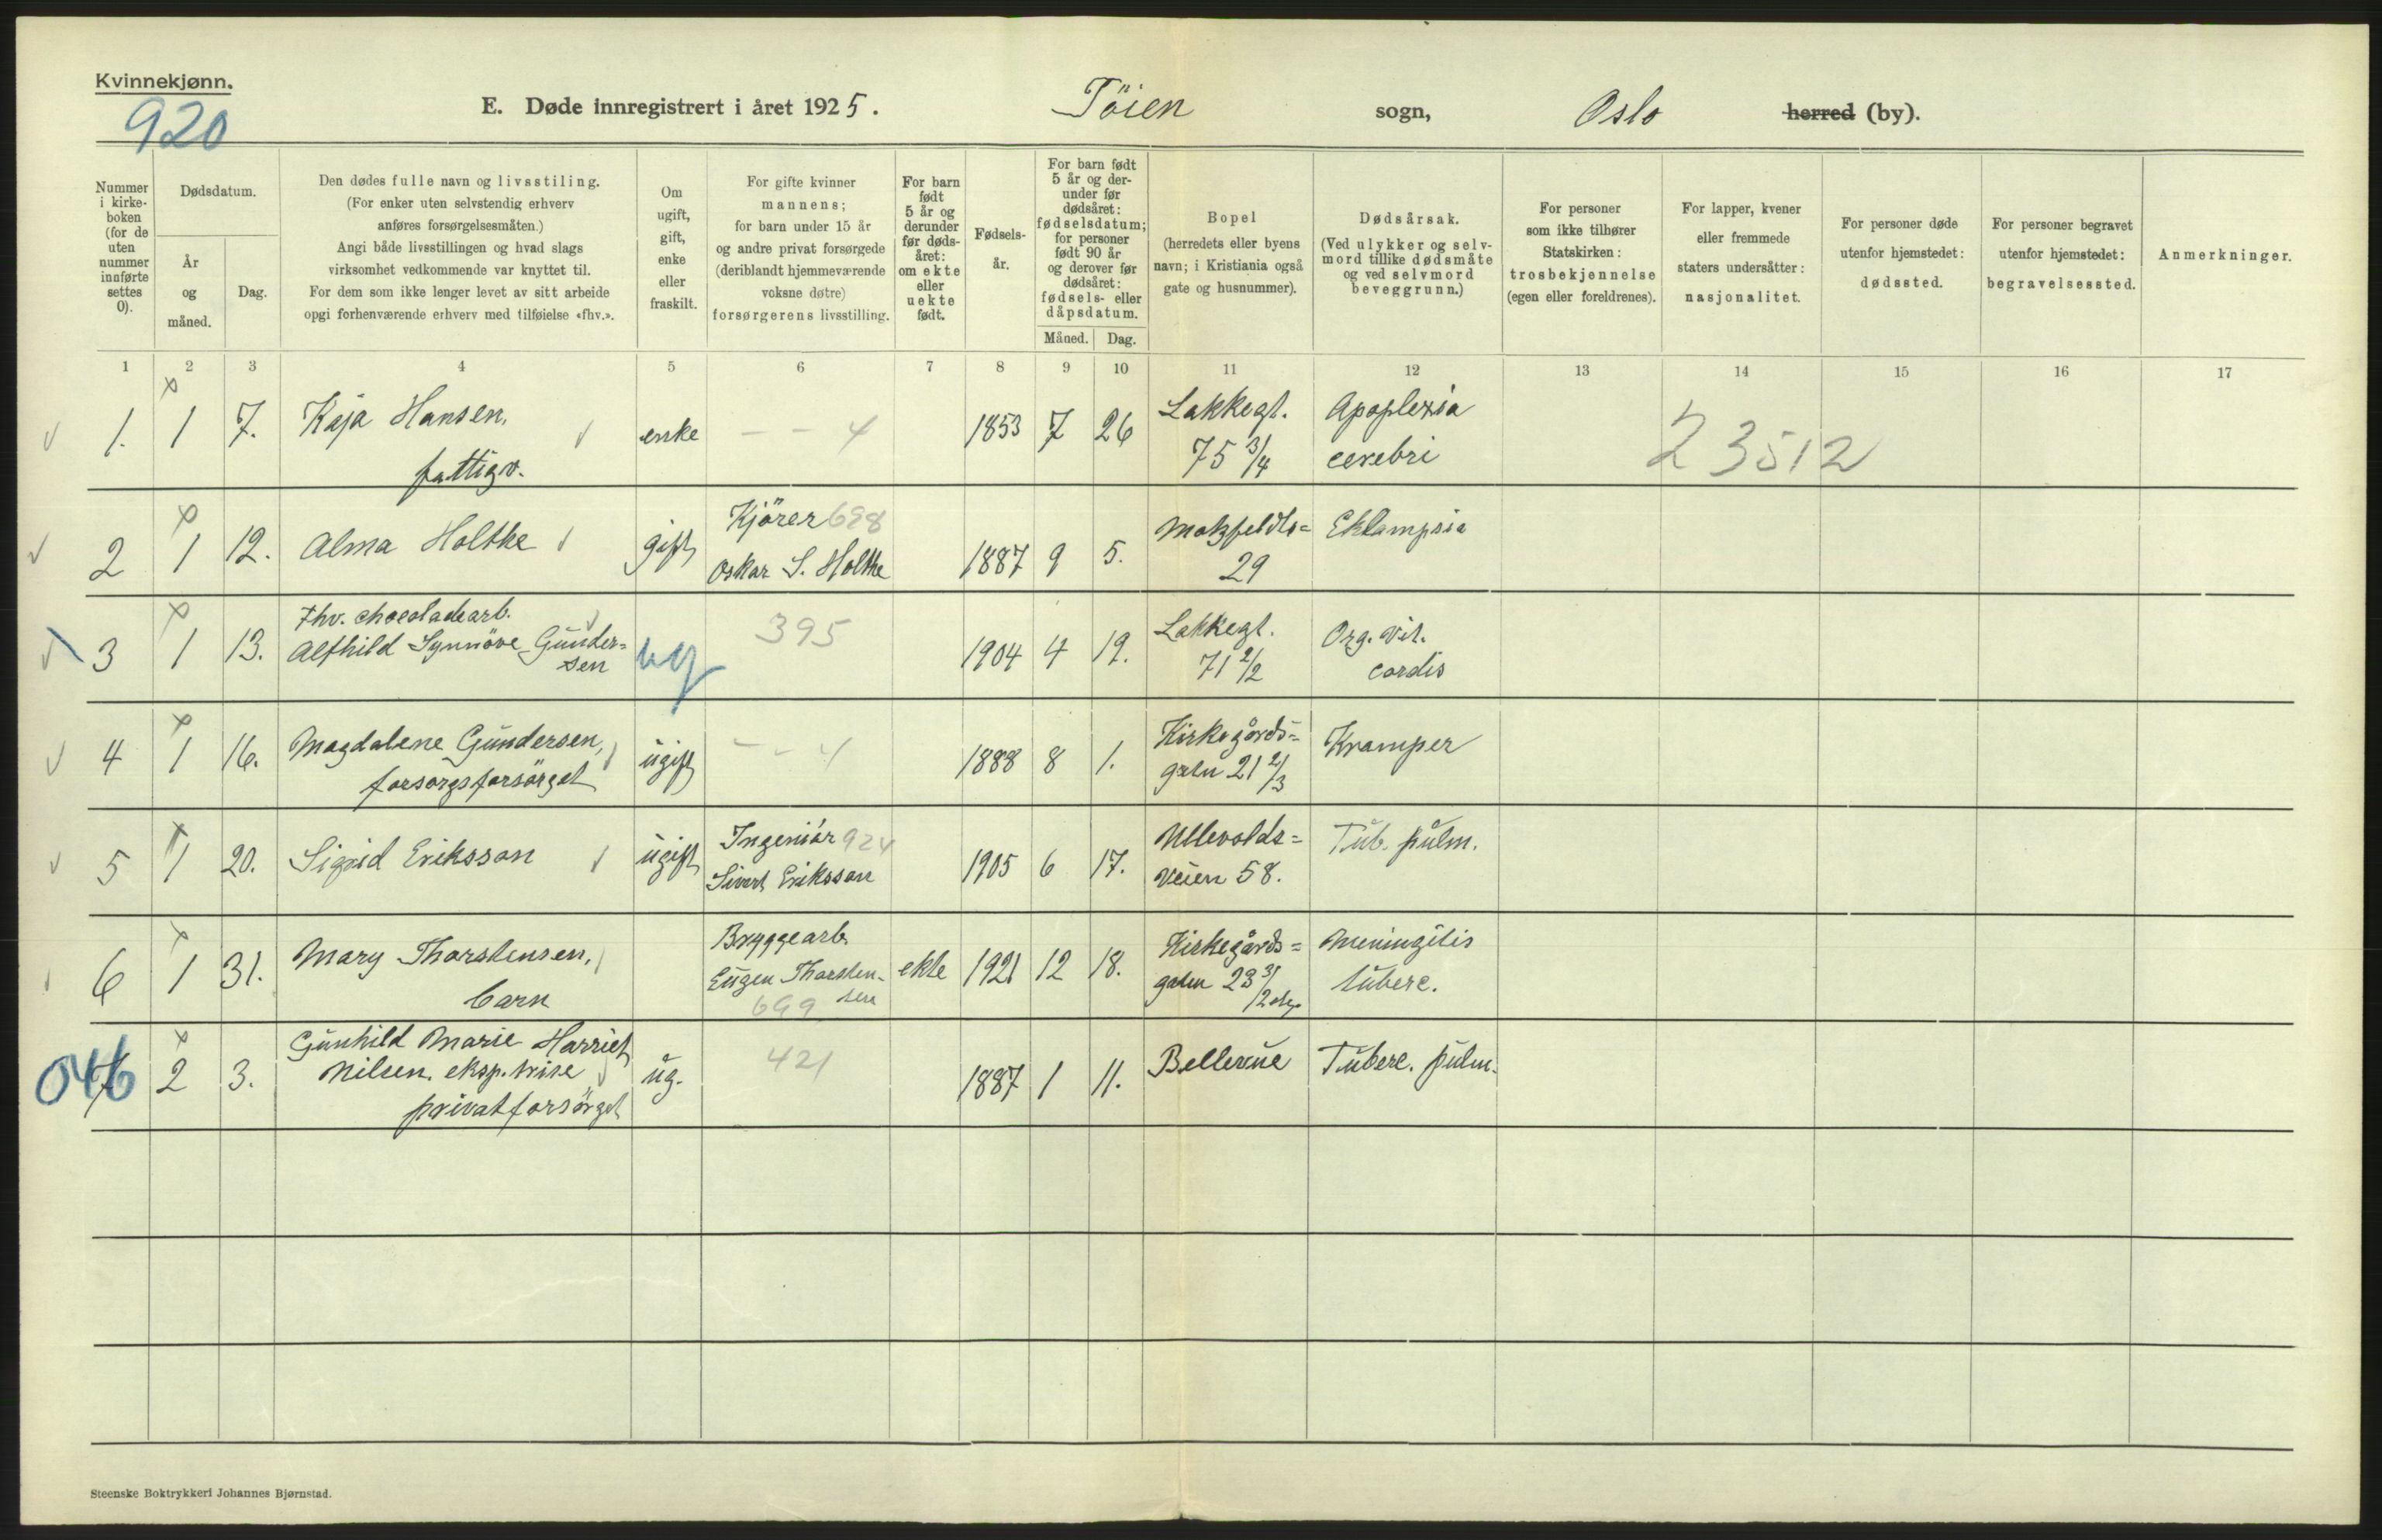 Kvinnekjønn.
920
E. Døde innregistrert i året 1925. Töien sogn, Oslo herred (by).
Nummer i kirke-boken (for de uten nummer innførte settes 0).
Dødsdatum.
År og måned.
Dag.
Den dødes fulle navn og livsstiling.
(For enker uten selvstendig erhverv
anføres forsørgelsesmåten.)
Angi både livsstillingen og hvad slags
virksomhet vedkommende var knyttet til.
For dem som ikke lenger levet av sitt arbeide
opgi forhenværende erhverv med tilføielse «fhv.».
Om ugift, gift, enke eller fraskilt.
For gifte kvinner
mannens;
for barn under 15 år
og andre privat forsørgede
(deriblandt hjemmeværende
voksne døtre)
forsørgerens livsstilling.
For barn født 5 år og derunder før døds-året: om ekte eller uekte født.
Fødsels-år.
For barn født 5 år og der-under før dødsåret: fødselsdatum; for personer født 90 år og derover før dødsåret: fødsels- eller dåpsdatum.
Måned. Dag.
Bopel
(herredets eller byens
navn; i Kristiania også
gate og husnummer).
Dødsårsak.
(Ved ulykker og selv-
mord tillike dødsmåte
og ved selvmord
beveggrunn.)
For personer
som ikke tilhører
Statskirken:
trosbekjennelse
(egen eller foreldrenes).
For lapper, kvener
eller fremmede
staters undersåtter:
nasjonalitet.
For personer døde
utenfor hjemstedet:
dødssted.
For personer begravet
utenfor hjemstedet:
begravelsessted.
Anmerkninger.
1 2 3 4 5 6 7 8 9 10 11 12 13 14 15 16 17
1. 1 7. Kaja Hansen, enke - - 4 1853 7 26 Lakkegt. Apoplexia
fattigv. 75 3/4 cerebri 23512
2 1 12. Alma Holthe gift Kjörer 698 1887 9 5. Motzfeldts= Eklampsia
Oskar S. Holthe 29
Fhv. chocoladearb.
3 1 13. Alfhild Synnöve Gunder= ug 395 1904 4 19. Lakkegt. Org. vit.
sen 71 2/2 cordis
4 1 16. Magdalene Gundersen, ugift - - 4 1888 8 1. Kirkegårds= Kramper
forsorgsforsörget gaten 21 2/3
5 1 20. Sigrid Eriksson ugift Ingeniör 924 1905 6 17. Ullevolds= Tub. pulm.
Sivert Eriksson Veien 58.
6 1 31. Mary Thorstensen, Bryggearb. ekte 1921 12 18. Kirkegårds= Meningitis
barn Eugen Thorsten- gaten 23 3/2 tuberc.
sen
699
046 7 2 3. Gunhild Marie Harriet ug. 421 1887 1 11. Bellevue Tuberc. pulm.
Nilsen, eksp.trise
privatforsörget
Steenske Boktrykkeri Johannes Bjørnstad.